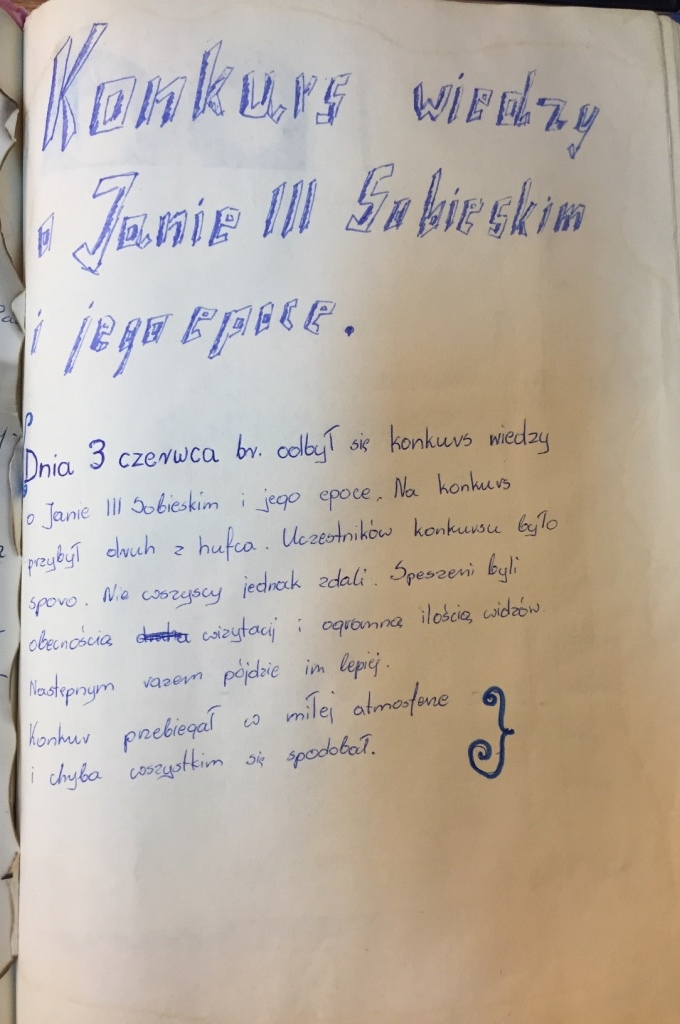 Konkurs wiedzy
o Janie III Sobieskim
i jego epoce.
Dnia 3 czerwca br. odbył się konkurs wiedzy
o Janie III Sobieskim i jego epoce. Na konkurs
przybył druh z hufca. Uczestników konkursu było
sporo. Nie wszyscy jednak zdali. Speszeni byli
obecnością wizytacij i ogromną ilością widzów.
Następnym razem pójdzie im lepiej.
Konkur przebiegał w miłej atmosferze
i chyba wszystkim się spodobał.